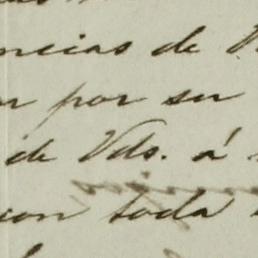 ncias de V
por su
de Vds. á
con toda